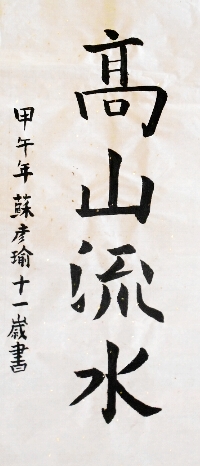 高山流水
甲午年蘇彦瑜十一歲書